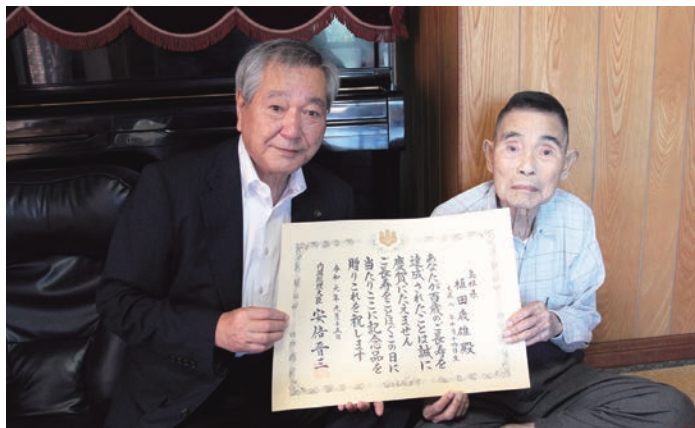 植田 雄殿
大正八年十月十四日生
あなたが百歳のご長寿を
達成されたことは誠に
慶賀にたえません
ご長寿をことほぐこの日に
当たりここに記念品を
贈りこれを祝します
令和元年九月十五日
内閣総理大臣 安倍晋三